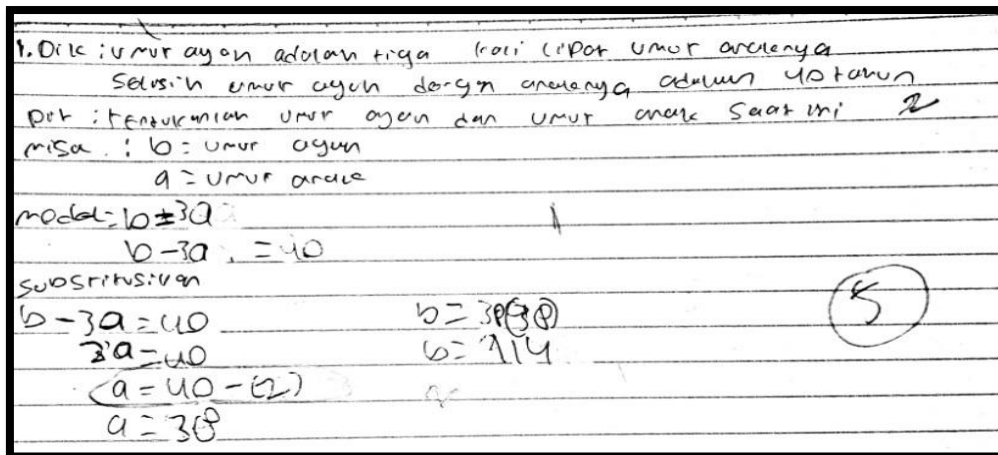 1. Dik : umur ayah adalah tiga kali lipat umur anaknya
Selisih umur ayah dengan anaknya adalah 40 tahun
Dit : tentukanlah umur ayah dan umur anak saat ini 2
misa : b = umur ayah
a = umur anak
model = b = 3a 1
b - 3a = 40
substitusikan
b - 3a = 40 b = 3(38)
2a = 40 b = 114
a = 40 - (2)
a = 38
5